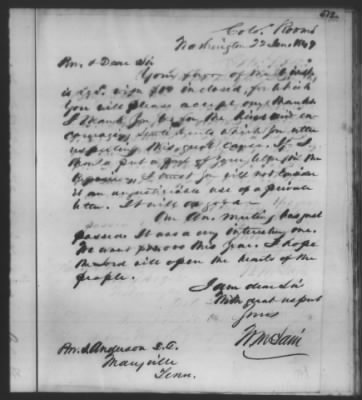 Colo. Rooms
Washington 22 Jan. 1849
Rev. & Dear Sir
Your favor of the inst.
is recd. with $10 inclosed, for which
you will please accept my thanks
I thank you too for the kind and en-
couraging sentiments which you utter
respecting this great cause. If I
should put a part of your letter in the
Repository, I trust you will not consider
it an unjustifiable use of a private
letter. It will do good
Our Ann. Meeting has just
passed. It was a very interesting one.
We want this year. I hope
the Lord will open the hearts of the
people.
I am dear Sir
With great respect
Yours
W McLain
Rev. I. Anderson D.D.
Maryville
Tenn.